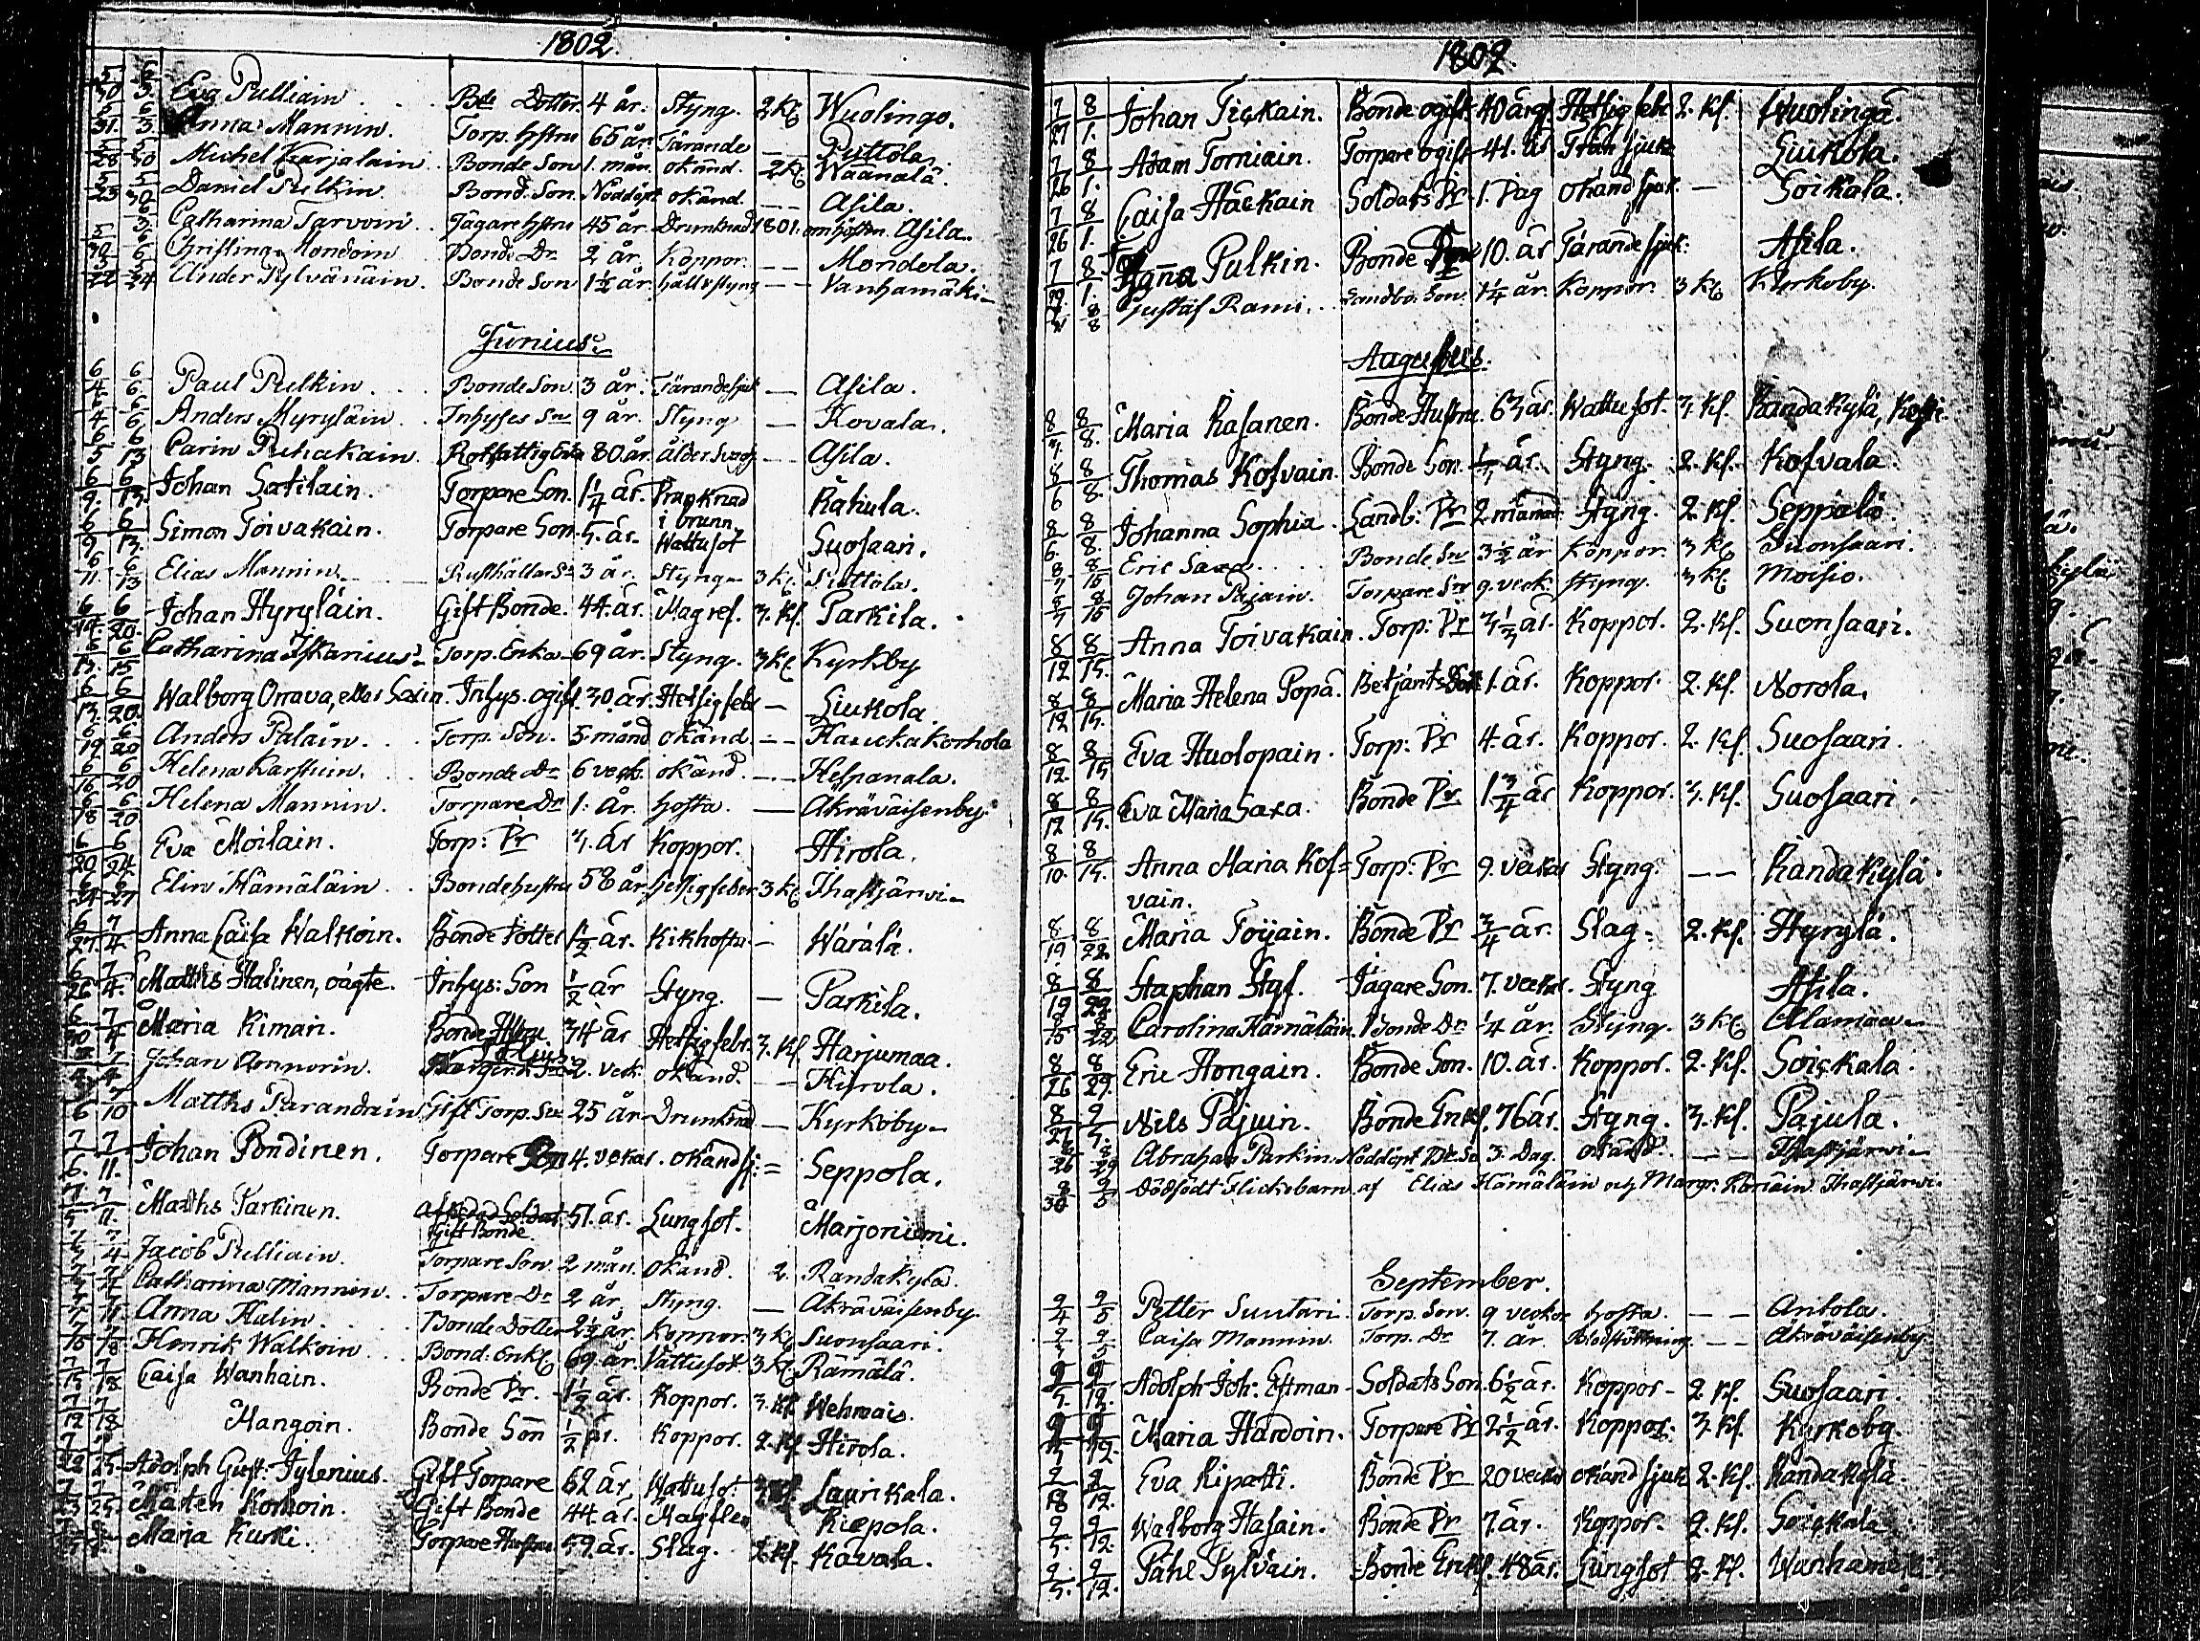 1802.
Eva Pulliain. Bde Dotter. 4 år. Styng. 2 Kl Wuolingo.
Anna Mannin. Torp. hstru 65 år. Tärande Puttola.
Michel Karjalain Bonde Son 1. mån. okänd. 2 Kl Waanala.
Daniel Pulkin Bond. Son. Nöddöpt okänd. — Asila.
Catharina Tarvoin Jägare hstru 45 år. Drunknad 1801. om hösten. Asila.
Mondoin Bonde Dr. 2 år. Koppor. — Mondola.
Ander Pylvänäin. Bonde Son 1 1/2 år. håll o styng — Vanhamäki
Junius.
6/4 6/6 Paul Pulkin Bonde Son. 3 år. Tärandesjuk — Asila.
6/4 6/6 Anders Myryläin. Inhyses Sn 9 år. Styng — Kovala.
6/5 6/13 Carin Puhakain. Rotfattig Enka 80 år. — Asila.
6/9. 6/13. Johan Satilain. Torpare Son. 1 1/4 år. Drunknad i brunn Rahula.
6/9 6/13. Simon Toivakain. Torpare Son. 5. år. Wattusot Suosaari.
6/11 6/13 Elias Mannin. Rusthållar Sn 3 år. Styng 3 Kl. Siottola.
Johan Hyryläin. Gift Bonde. 44. år. Mag ref. 3. Kl. Parkila.
Catharina Iskanius Torp. Enka 69 år. Styng. 3 Kl Kyrkby
Walborg Orrava, eller Saxin. Inhys. ogift. 30. år. Hetsig feb — Liukola.
6/19 6/20 Anders Palain. Torp. Son. 5. månd okänd. — Hauckakorhola
6/16 6/20 Helena Karstuin. Bonde Dr 6 veck. okänd. — Helpanala.
6/18 6/20 Helena Mannin. Torpare Dr 1. År. hosta. — Akräväisenby
6/20 6/24 Eva Moilain. Torp: Dr 3. år Koppor. Hirola.
Elin Hämäläin. Bondehustru 58 år. hetsigfeber. 3 Kl Ihastjärvi
6/27. 7/4. Anna Caisa Walkoin. Bonde Dotter 1 1/2 år. Kikhosta — Wäralä.
6/26 7/4. Matths Halinen, oägte. Inhys: Son 1/2 år Styng. — Parkila.
6/30 7/4 Maria Kimari. Bonde 34 år Hetsig febr. 3. Kl. Harjumaa.
Johan Annorin. 2. veck. okänd. — Hirola.
Matths Parandain Gift Torp. Sn 25 år Drunknad — Kyrkoby
7/6. 7/11. Johan Pöndinen. Torpare Son 4. vekor. okänd sj. = Seppola.
7/5 7/11. Matths Parkinen. Afskedad Soldat Gift Bonde. 51. år. Lungsot. Marjoniemi.
Jacob Pulliain. Torpare Son. 2 mån. okänd. 2. Randakylä.
Catharina Mannin. Torpare Dr 2 år. Styng. — Akräväisenby
Anna Halin. Bonde Dotter 2 1/2 år. Koppor. 3 Kl Suonsaari.
Henrik Walkoin Bond: Enkl 69 år. Vattusot 3 Kl. Rämälä.
Caisa Wanhain. Bonde Dr. 1 1/2 år. Koppor. 3. Kl. Wehmais.
7/12 7/18 Mangoin. Bonde Son 1/2 år. Koppor. 2. Kl Hirola.
Adolph Gust: Tylenius. Gift Torpare 62 år. Wattusot. Laurikala.
Mårten Korhoin. Gift Bonde 44. år. Magflen Riepola.
Maria Kurki. Torpare Hustru 59. år. Slag. 2. Kl. Kavala.
1802.
7/27 8/1. Johan Tickain. Bonde ogift. 40 årg. Hetsig febr 2. Kl. Wuolinga.
7/26 8/1. Adam Torniain. Torpare ogift 41. år sjuk Liukola.
7/26 8/1. Caisa Hackain Soldats Dr. 1. Dag okänd sjuk. — Soikala.
7/29. 8/1. Anna Pulkin. Bonde 10. år Tärande sjuk: Asila.
Gustaf Rami. Landbo. Son. 1 1/4 år. Koppor. 3 Kl Kyrkoby.
Augustus.
8/7. 8/8. Maria Rasanen. Bonde Hustru. 63 år. Wattusot. 3. Kl. Randakylä,
8/6 8/8. Thomas Kofvain. Bonde Son. år. Styng. 2. Kl. Kofvala.
8/6. 8/8. Johanna Sophia. Landb: Dr 2 månad Styng. 2. Kl. Seppälä.
8/7 8/15 Eric Saxa. Bonde Sn 3 1/2 år Koppor. 3 Kl Suonsaari.
8/7 8/15 Johan Pajain. Torpare Sn 9. veck. styng. 3 Kl. Moisio.
8/12 8/15. Anna Toivakain. Torp: Dr år. Koppor. 2. Kl. Suonsaari.
8/12 8/15. Maria Helena Popa. Betjänts 1. år. Koppor. 2. Kl. Norola.
8/12. 8/15 Eva Huolopain. Torp: Dr 4. år. Koppor. 2. Kl. Suosaari.
8/12 8/15. Eva Maria Saxa. Bonde Dr 1 3/4 år Koppor. 3. Kl. Suosaari.
8/10. 8/15. Anna Maria Kof= Torp: Dr 9. veckor Styng. — Randakylä.
vain.
8/19 8/22. Maria Toijain. Bonde Dr 3/4 år. Slag. 2. Kl. Hyrylä.
8/19 8/22 Staphan Styf. Jägare Son. 7. veckor. Styng Asila.
8/15 8/22 Carolina Hämäläin. Bonde Dr 1/4 år. Styng. 3 Kl Alamaa
8/26 8/29. Eric Hongain. Bonde Son. 10. år. Koppor. 2. Kl. Soickala.
Nils Pajuin. Bonde Enkl. 76 år. Styng. 3. Kl. Pajula.
8/26 8/29 Abraham Parkin. Nöddöpt 3. Dag. okänd. — Ihastjärvi
Dödfödt Flickebarn af Elias Hämäläin och Margr. Kariain. Ihastjärvi.
September.
9/4 9/5 Petter Suutari Torp. Son. 9 veckor hosta. — Antola.
Caisa Mannin. Torp. Dr 7. år. Blodstörtning. — Akräväisenby
9/5. 9/12. Adolph Joh: Estman Soldats Son 6 1/2 år. Koppor 2. Kl. Suosaari.
Maria Hardoin. Torpare Dr 2 1/2 år. Koppor. 3. Kl. Kyrkoby.
Eva Ripatti. Bonde Dr 20 veckor okänd sjuk 2. Kl. Randakylä.
9/5. 9/12. Walborg Hasain. Bonde Dr 7. år. Koppor. 2. Kl. Soickala.
9/5. 9/12. Påhl Pylväin. Bonde Enkl. 48 år. Lungsot 2. Kl. Wanhamäki